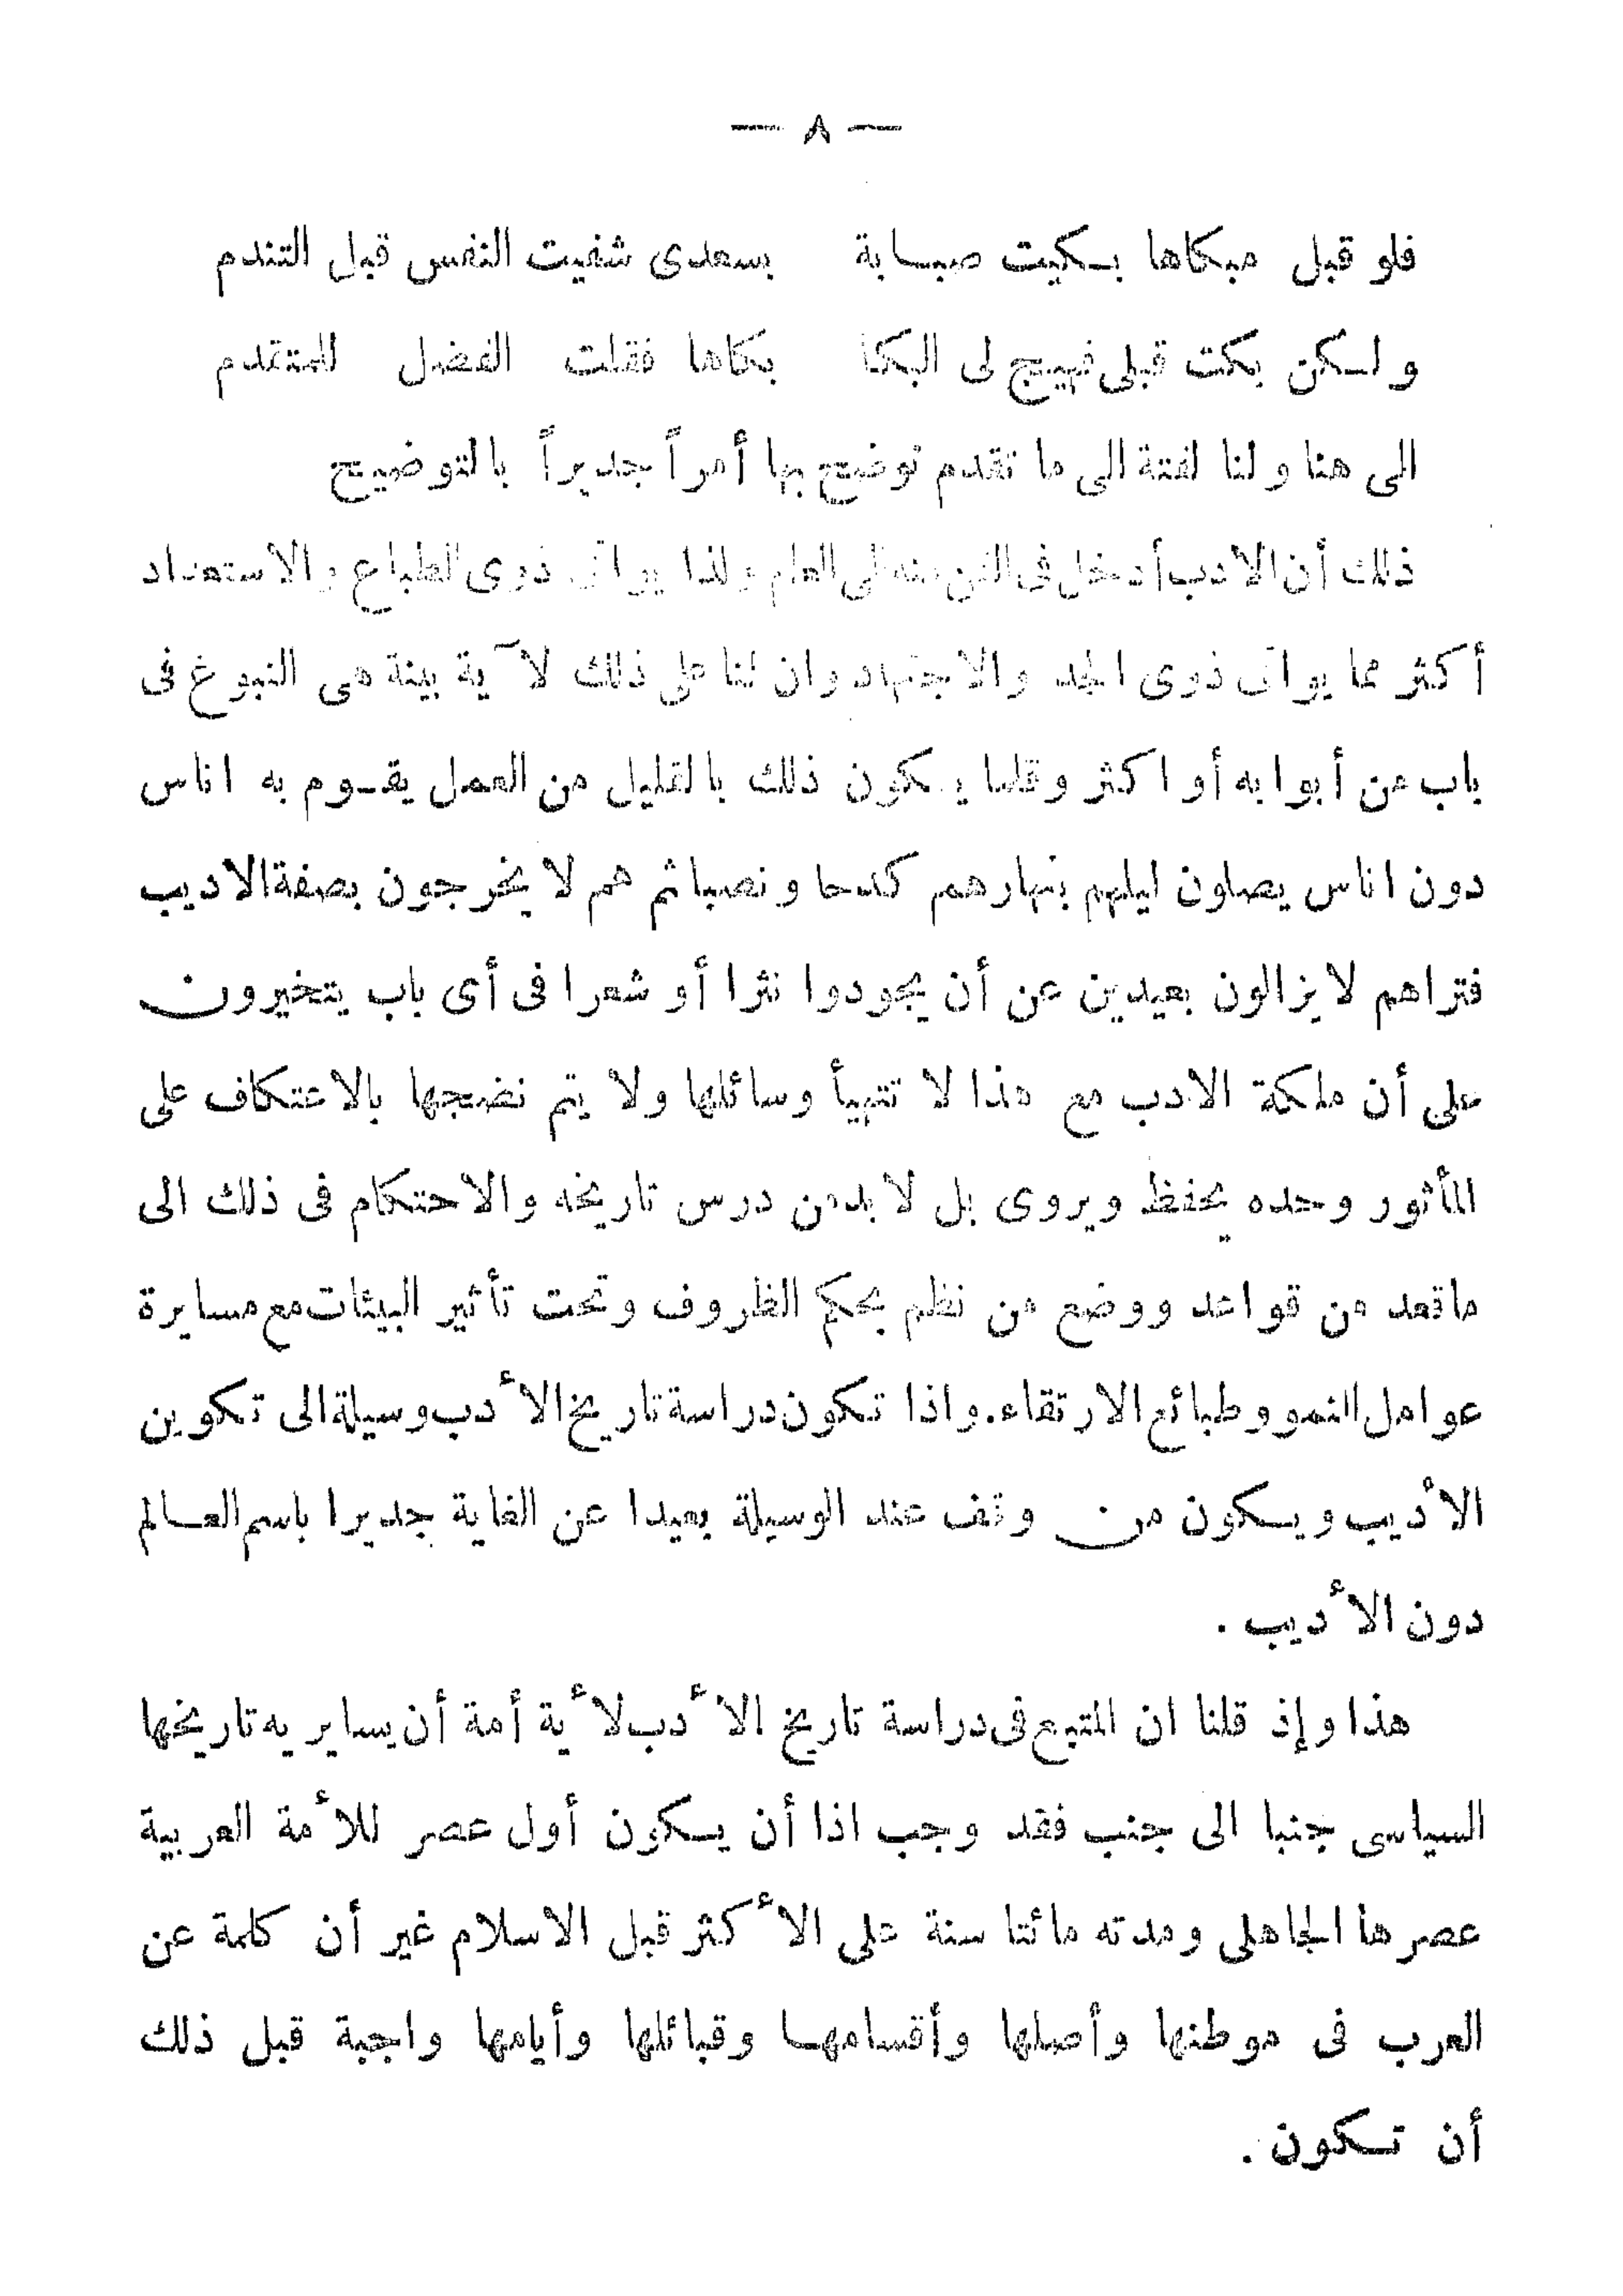 — ٨ —
فلو قبل مبكاها بكيت صبابة بسعدى شفيت النفس قبل التندم
ولكن بكت قبلى فهيج لى البكا بكاها فقلت الفضل للمتقدم
الى هنا ولنا لفتة الى ما تقدم نوضح بها أمراً جديراً بالتوضيح
ذلك أن الادب أدخل فى الفن منه الى العلم ولذا يواتى ذوى الطباع والاستعداد
أكثر مما يواتى ذوى الجد والاجتهاد وان لنا على ذلك لآية بينة هى النبوغ فى
باب من أبوابه أو اكثر وقلما يكون ذلك بالقليل من العمل يقوم به اناس
دون اناس يصلون ليلهم بنهارهم كدحا ونصبا ثم هم لا يخرجون بصفة الاديب
فتراهم لا يزالون بعيدين عن أن يجودوا نثرا أو شعرا فى أى باب يتخيرون
على أن ملكة الادب مع هذا لا تتهيأ وسائلها ولا يتم نضجها بالاعتكاف على
المأثور وحده يحفظ ويروى بل لا بد من درس تاريخه والاحتكام فى ذلك الى
ما قعد من قواعد ووضع من نظم بحكم الظروف وتحت تأثير البيئات مع مسايرة
عوامل النمو وطبائع الارتقاء. واذا تكون دراسة تاريخ الأدب وسيلة الى تكوين
الأديب ويكون من وقف عند الوسيلة بعيدا عن الغاية جديرا باسم العالم
دون الأديب .
هذا وإذ قلنا ان المتبع فى دراسة تاريخ الأدب لأية أمة أن يساير به تاريخها
السياسى جنبا الى جنب فقد وجب اذا أن يكون أول عصر للأمة العربية
عصرها الجاهلى ومدته مائتا سنة على الأكثر قبل الاسلام غير أن كلمة عن
العرب فى موطنها وأصلها وأقسامها وقبائلها وأيامها واجبة قبل ذلك
أن تكون .